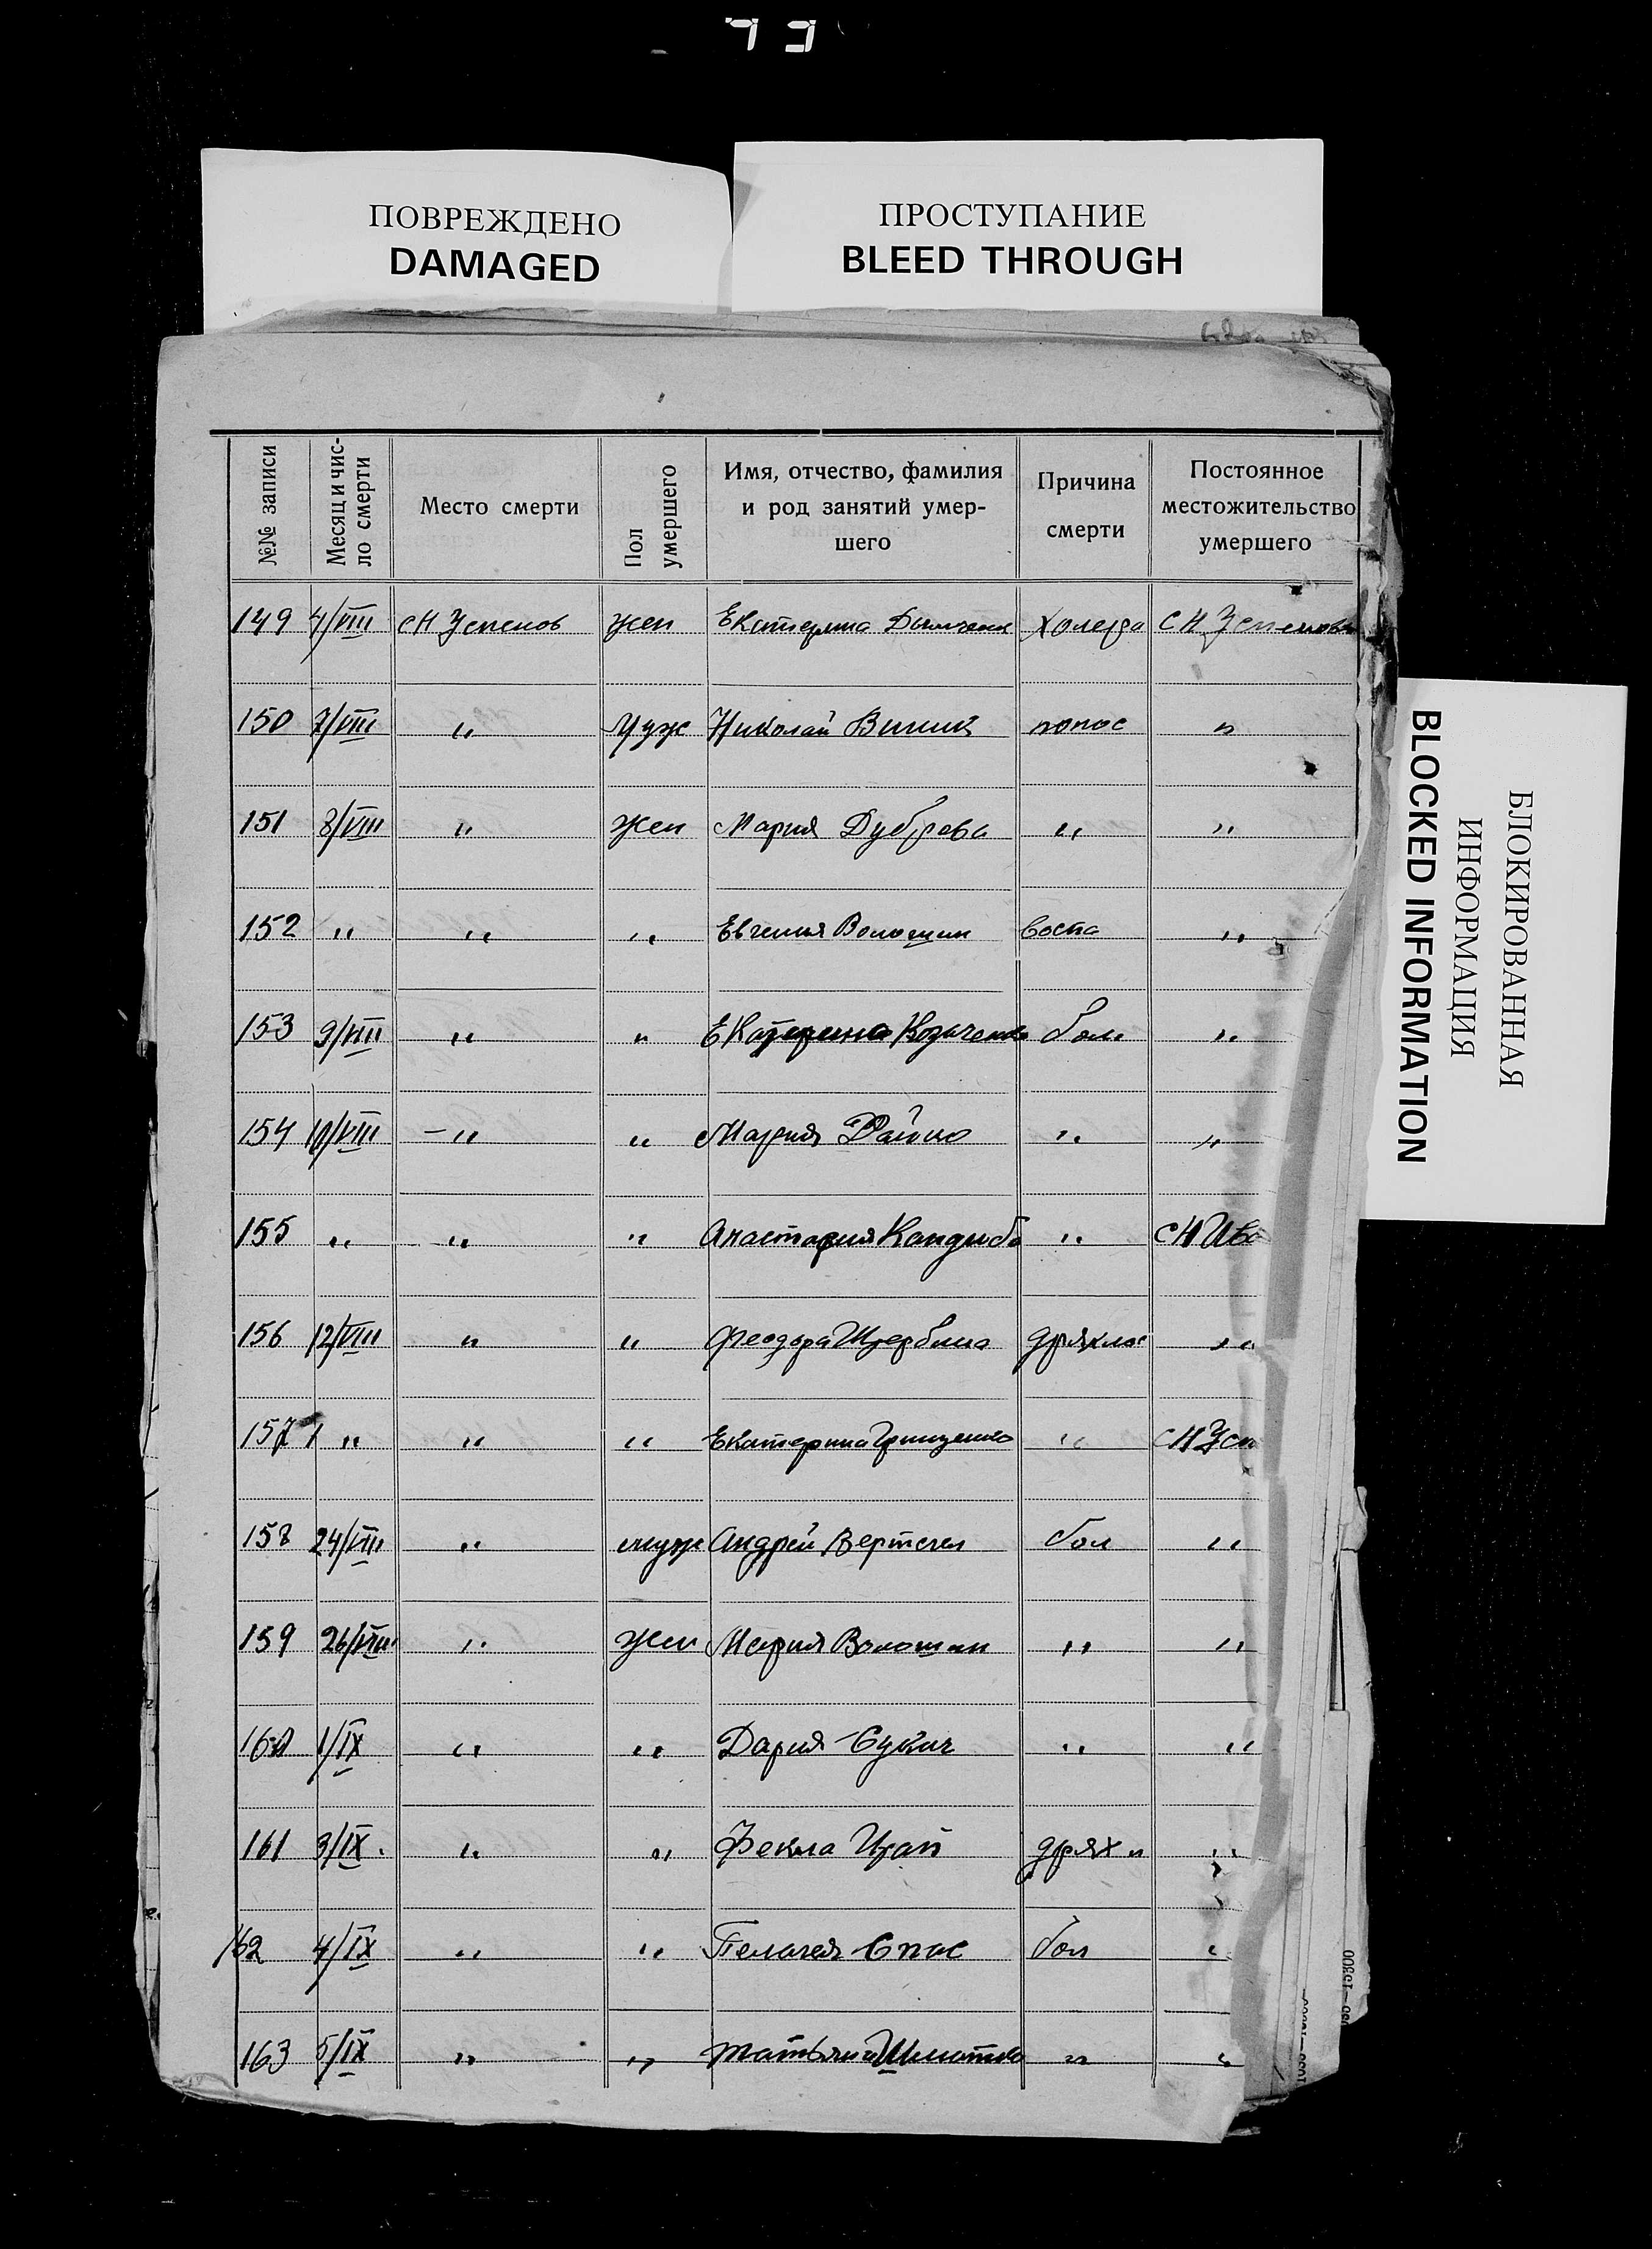 ПОВРЕЖДЕНО
DAMAGED
ПРОСТУПАНИЕ
BLEED THROUGH
БЛОКИРОВАННАЯ
ИНФОРМАЦИЯ
BLOCKED INFORMATION
№№ записи | Месяц и чис-ло смерти | Место смерти | Пол умершего | Имя, отчество, фамилия и род занятий умер-шего | Причина смерти | Постоянное местожительство умершего
149 4/VIII СН Успенов жен Екатерина холера СН Успеновк
150 7/VIII " Муж Николай Винник понос "
151 8/VIII " жен Мария Дуброва " "
152 " " " Евгения Волошин воспа "
153 9/VIII " " Екатерина Козаченко бол "
154 10/VIII — " " Мария "
155 " " " Анастасия Кандыба " СН Ива
156 12/VIII " " Феодора Щербина дряхлос "
157 " " " Екатерина Грищенко " СН Усп
158 24/VIII " муж Андрей бол "
159 26/VIII " жен Мария Волошин " "
160 1/IX " " Дария Сукач " "
161 3/IX " " Фекла дрях "
162 4/IX " " Пелагея Спас бол "
163 5/IX " " Татьяна Шматко " "